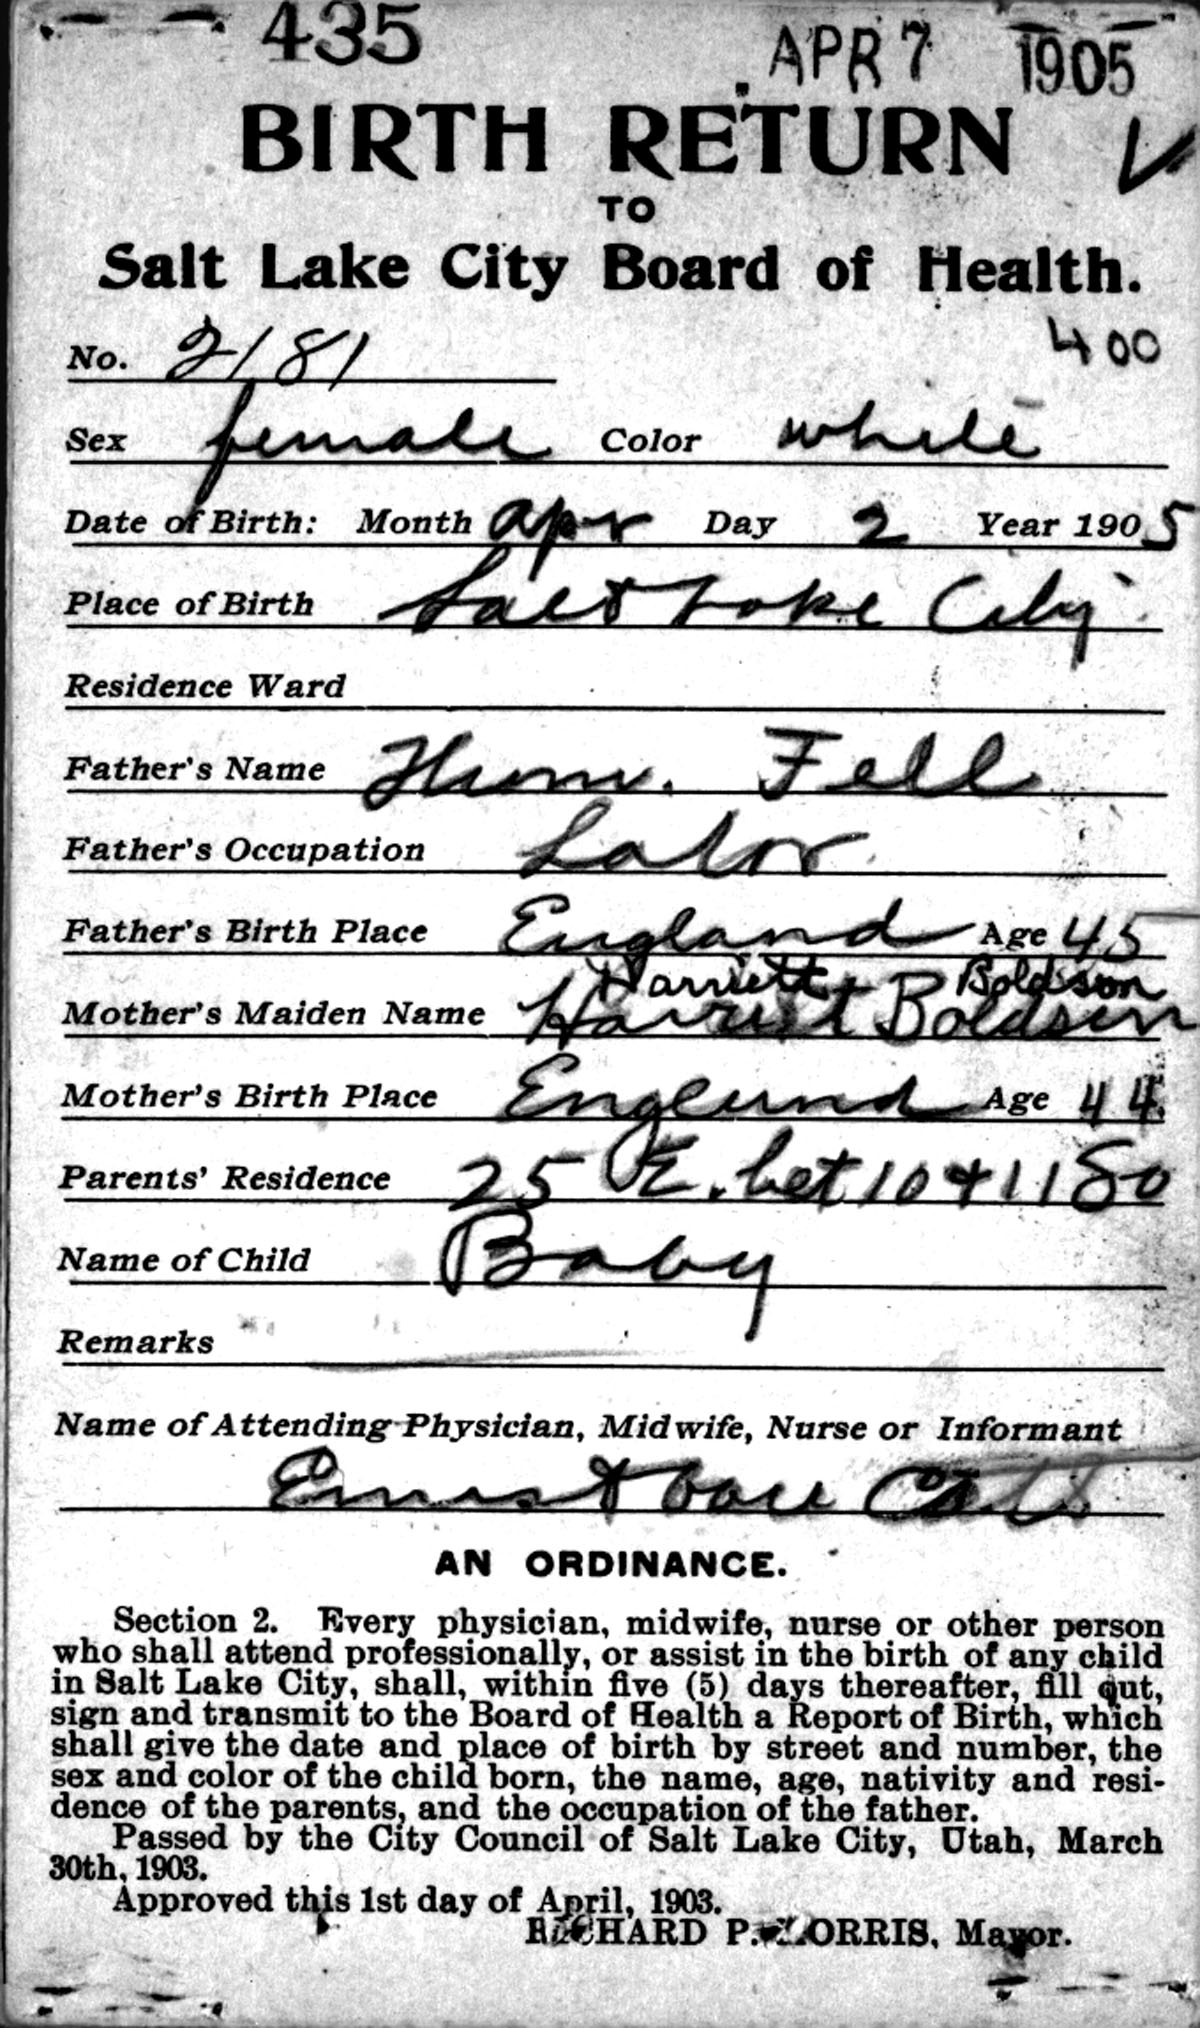 435 APR 7 1905
BIRTH RETURN
TO
Salt Lake City Board of Health.
400
No. 2181
Sex female Color white
Date of Birth: Month Apr Day 2 Year 1905
Place of Birth Salt Lake City
Residence Ward
Father's Name Fell
Father's Occupation Labor
Father's Birth Place England Age 45
Harriett Boldson
Mother's Maiden Name Harriet Boldsen
Mother's Birth Place England Age 44
Parents' Residence 25 E. bet 10 & 11 So
Name of Child Baby
Remarks
Name of Attending Physician, Midwife, Nurse or Informant
Ernest Van Cott
AN ORDINANCE.
Section 2. Every physician, midwife, nurse or other person
who shall attend professionally, or assist in the birth of any child
in Salt Lake City, shall, within five (5) days thereafter, fill out,
sign and transmit to the Board of Health a Report of Birth, which
shall give the date and place of birth by street and number, the
sex and color of the child born, the name, age, nativity and resi-
dence of the parents, and the occupation of the father.
Passed by the City Council of Salt Lake City, Utah, March
30th, 1903.
Approved this 1st day of April, 1903.
RICHARD P. MORRIS, Mayor.